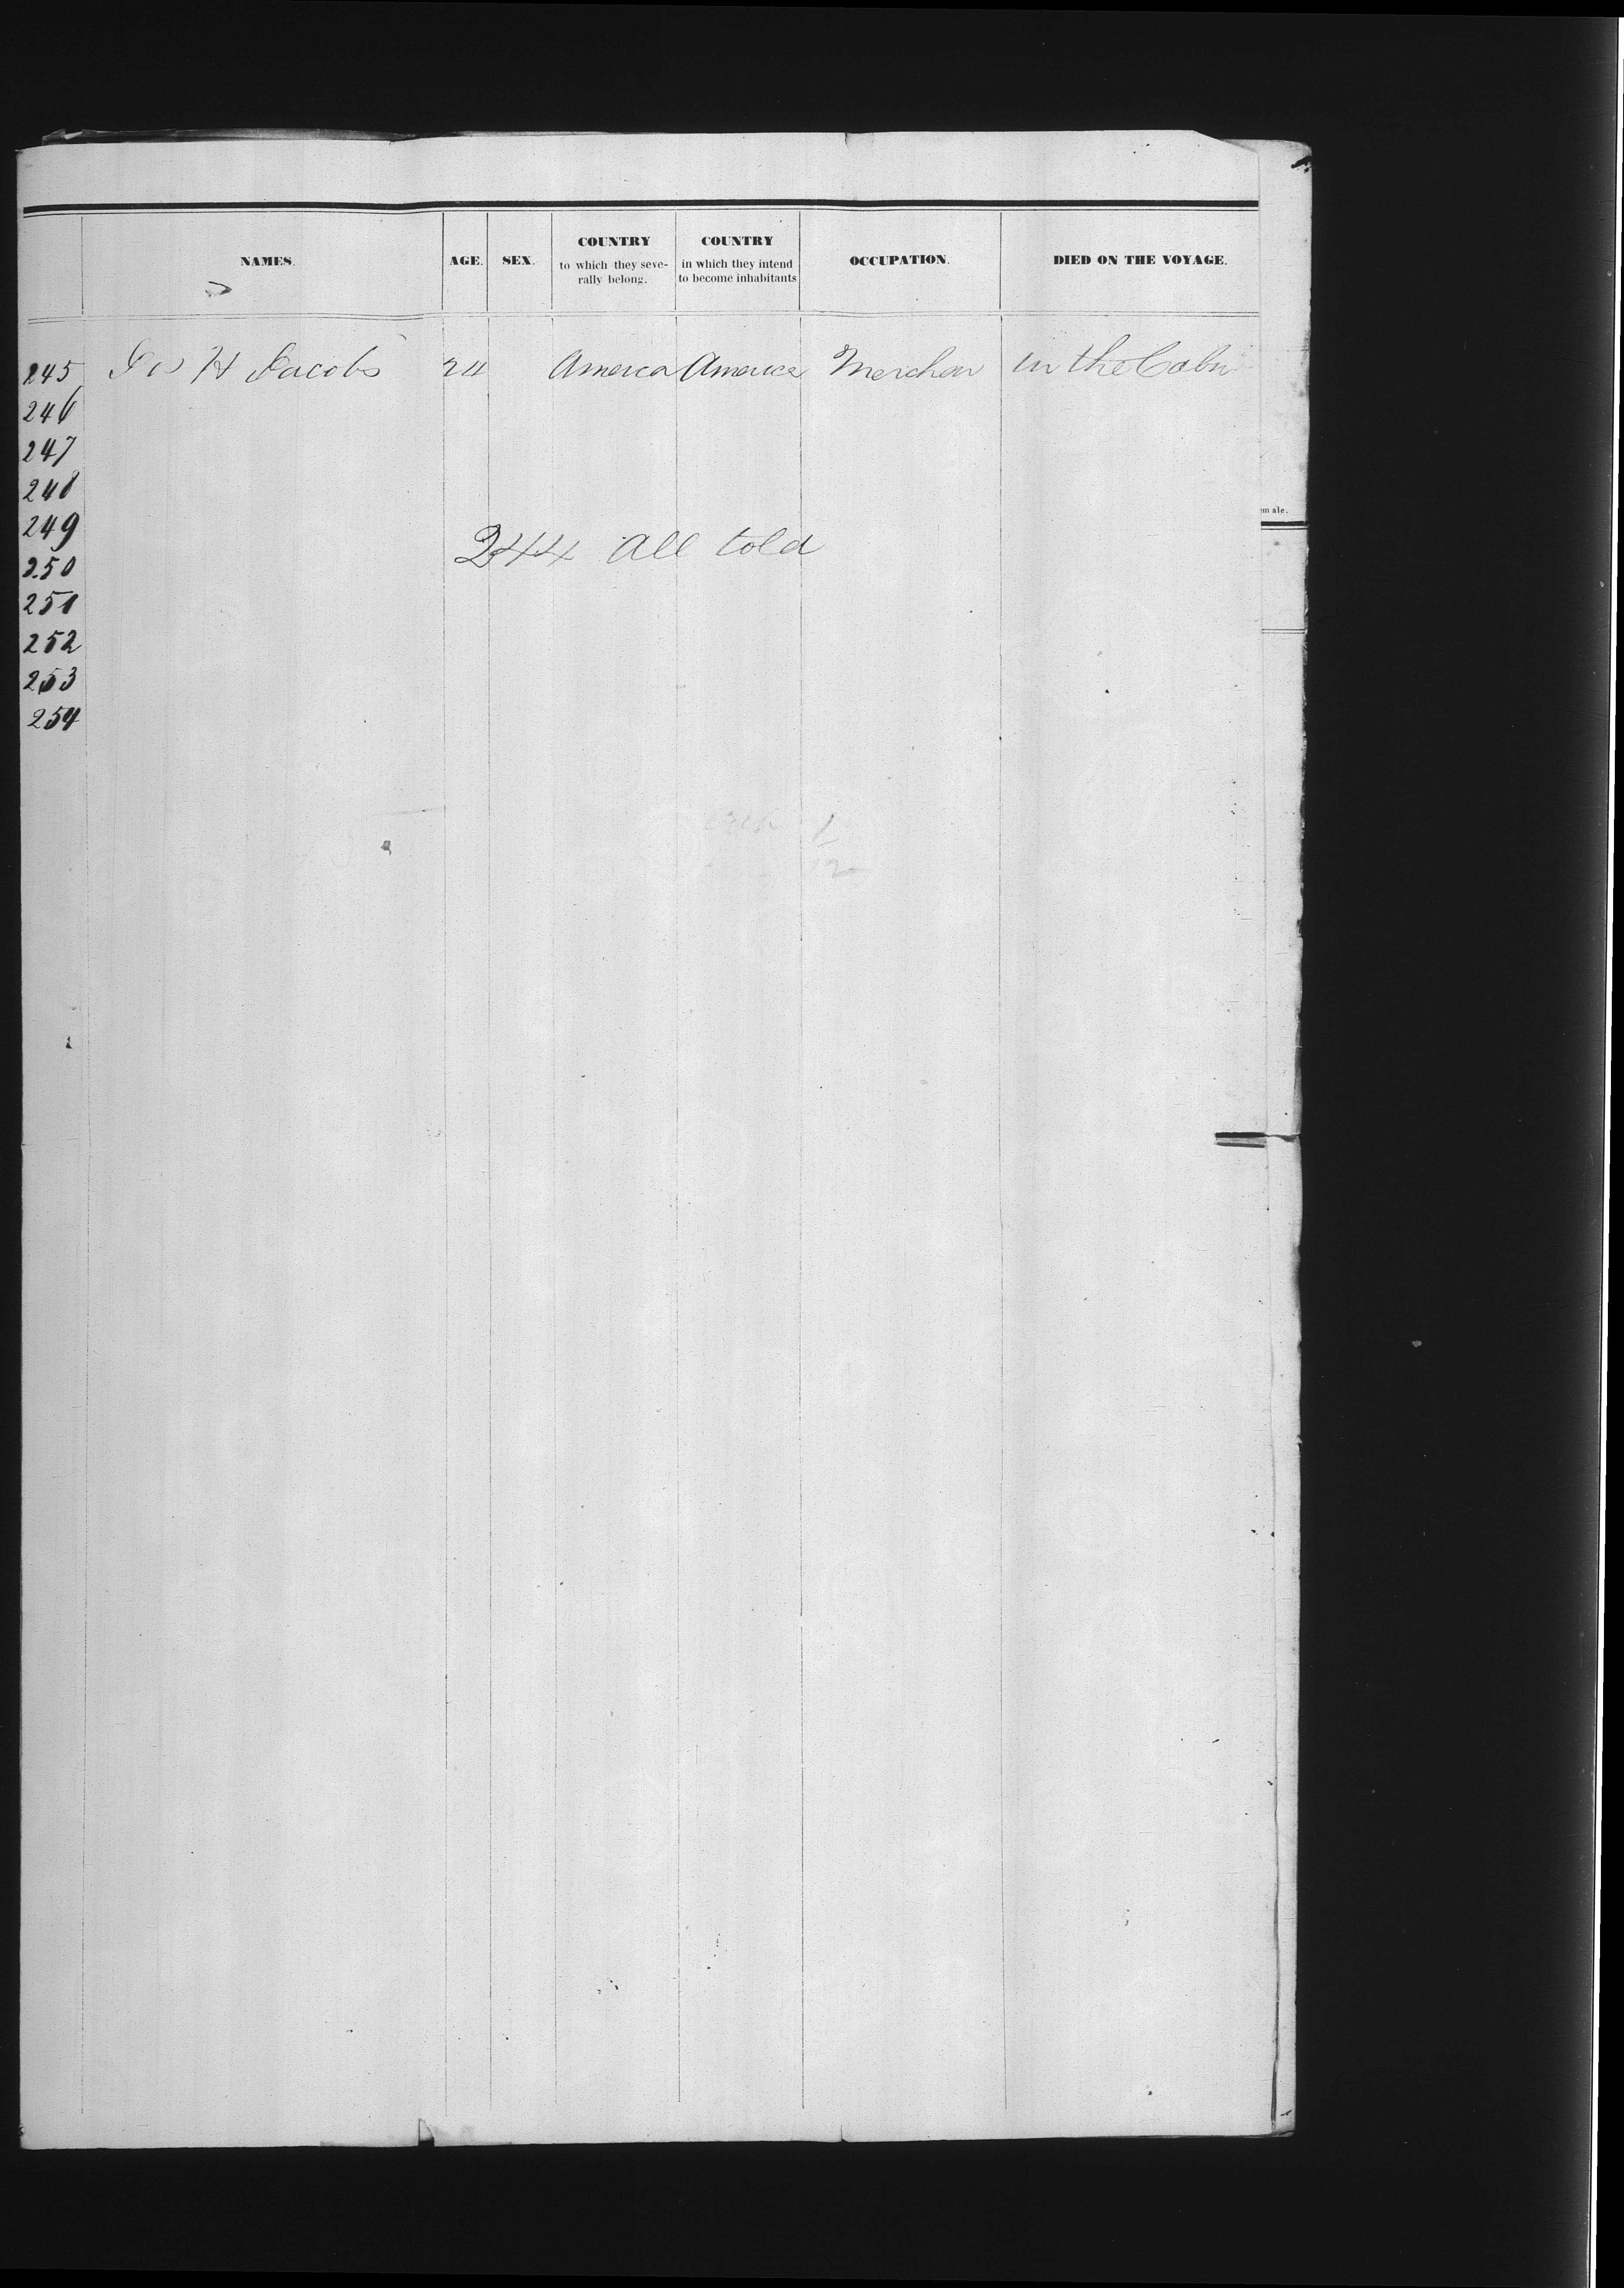 NAMES. AGE. SEX. COUNTRY to which they seve-rally belong. COUNTRY in which they intend to become inhabitants OCCUPATION. DIED ON THE VOYAGE.
245 H Jacobs 24 America America Merchan in the Cabin
246
247
248
249
244 All told
250
251
252
253
254
emale.